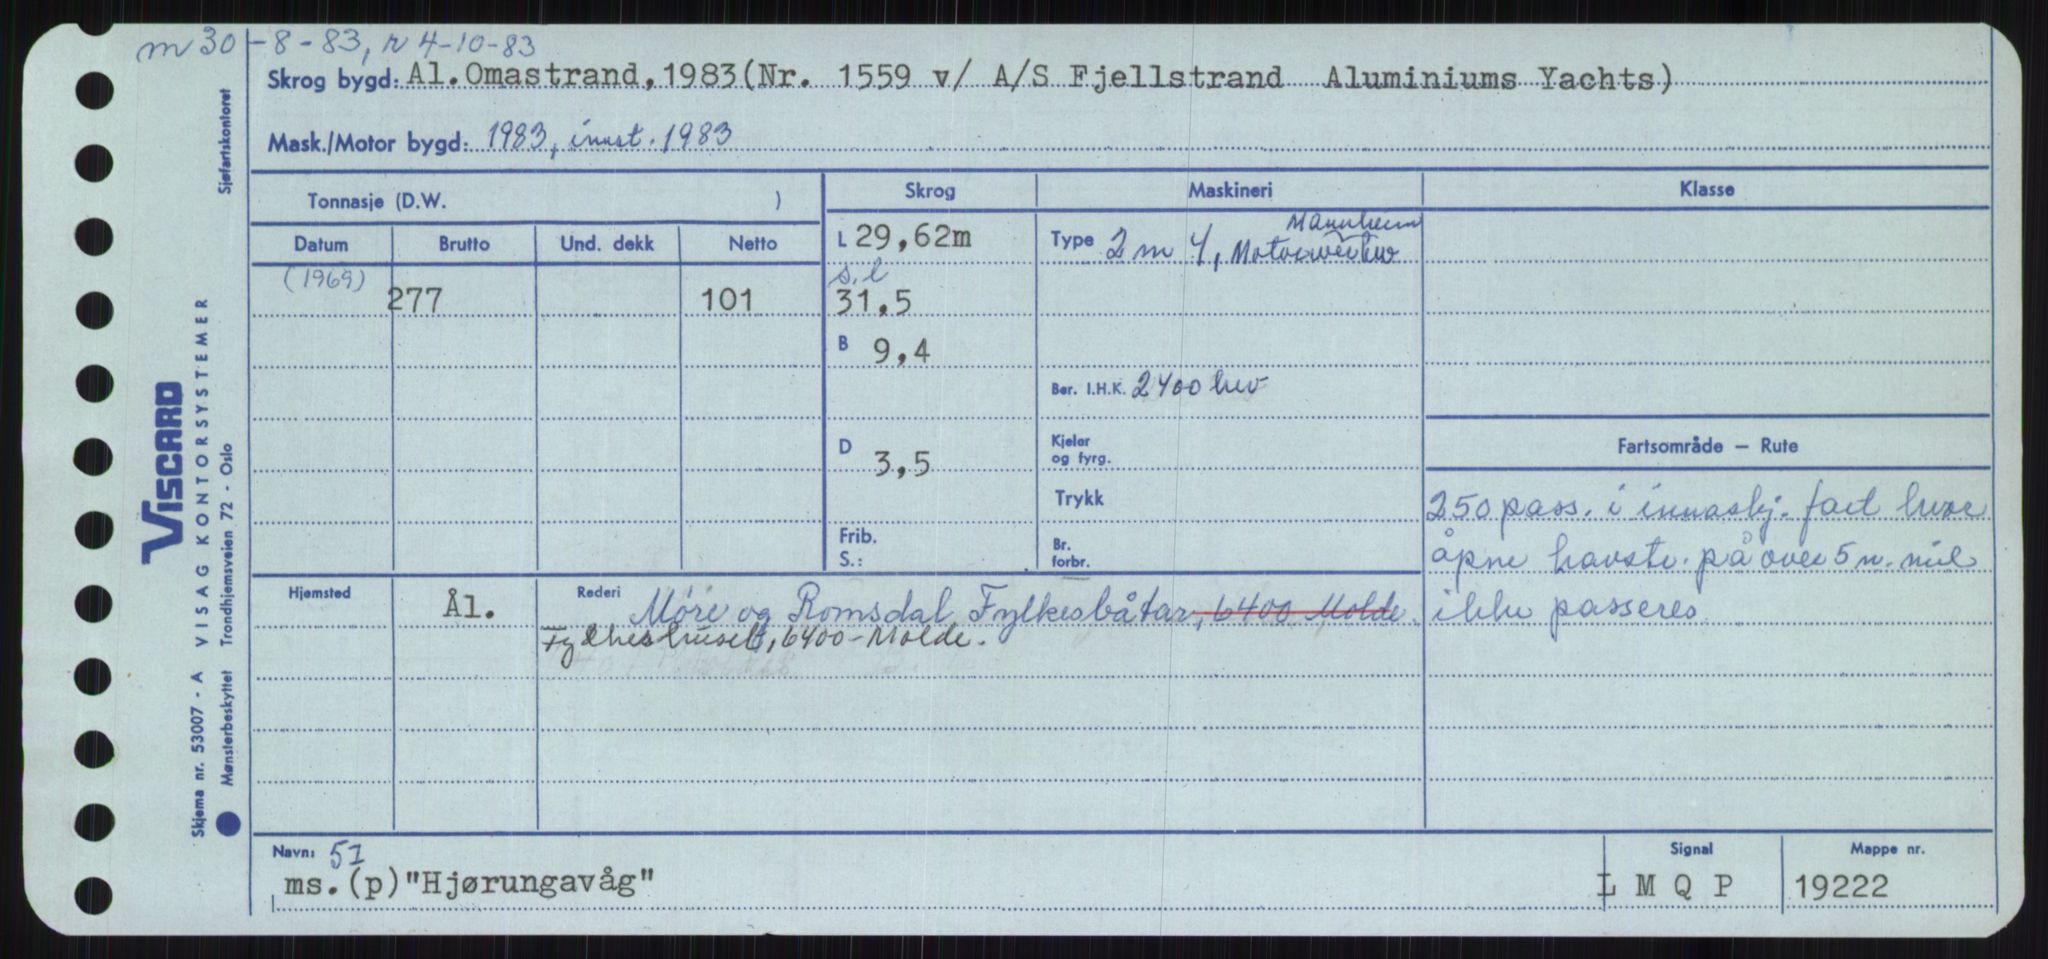 m 30-8-83, r 4-10-83
Skrog bygd: Al. Omastrand, 1983 (Nr. 1559 v/ A/S Fjellstrand Aluminiums Yachts)
Mask./Motor bygd: 1983, inst. 1983
Tonnasje (D.W. )
Skrog
Maskineri
Klasse
Datum
Brutto
Und. dekk
Netto
(1969)
277
101
L 29,62m
s.l
31,5
B 9,4
D 3,5
Frib.
S.:
Mannheim
Type 2 m 4, Motorwerke
Ber. I.H.K. 2400 hk
Kjeler
og fyrg.
Trykk
Br.
forbr.
Fartsområde — Rute
250 pass. i innaskj. fart hvor
åpne havstr. på over 5 n. mil
ikke passeres
Hjemsted
Ål.
Rederi
Møre og Romsdal Fylkesbåtar, 6400 Molde.
Fylkeshuset, 6400-Molde.
Navn: 51
ms.(p) "Hjørungavåg"
Signal
L M Q P
Mappe nr.
19222
Sjøfartskontoret
VISCARD
VISAG KONTORSYSTEMER
Trondhjemsveien 72 - Oslo
Skjema nr. 53007 - A
Mønsterbeskyttet